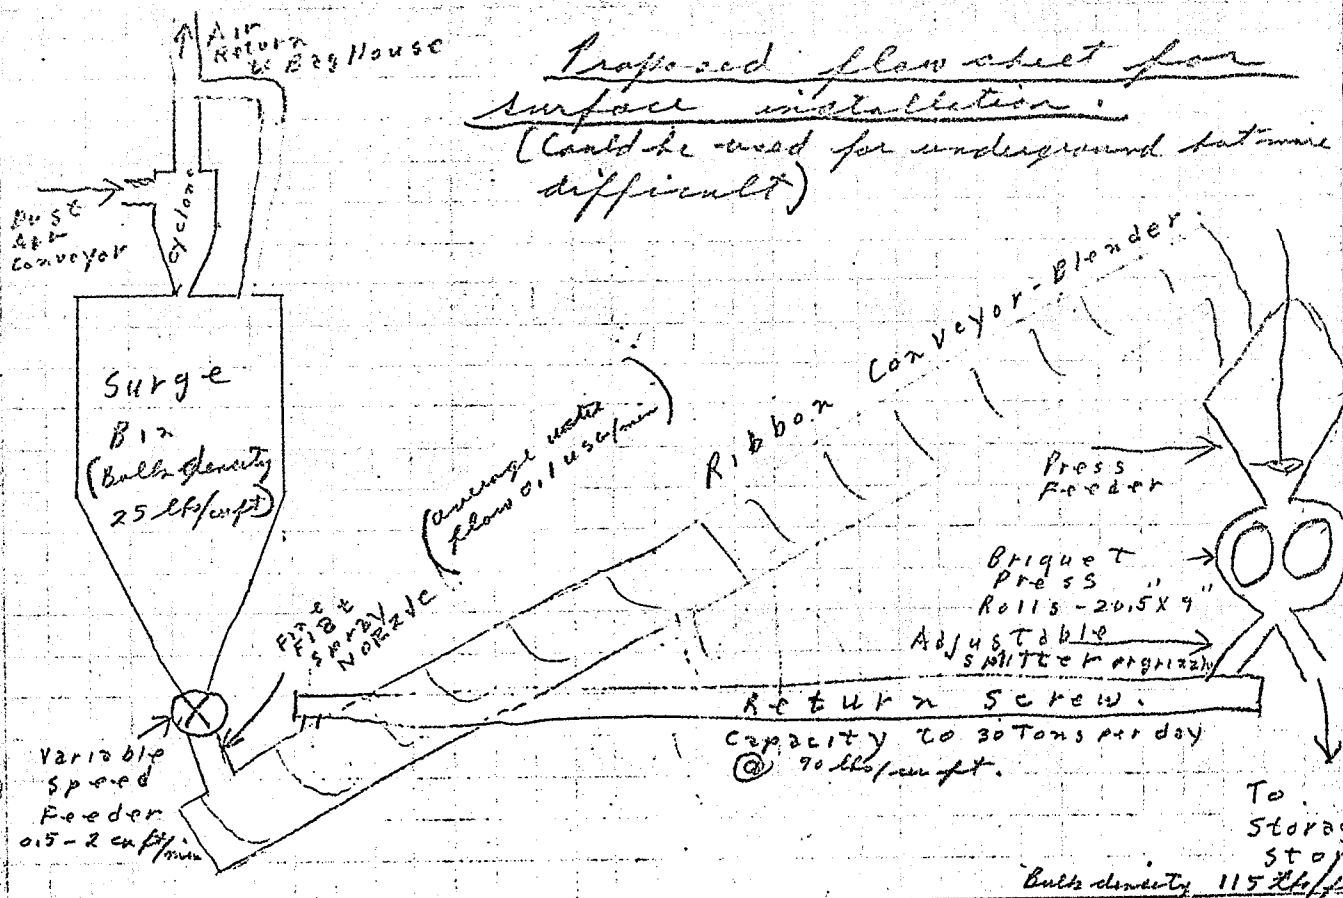 Air
Return
to Bag House
Proposed flowsheet for
surface installation.
(Could be used for underground but more
difficult)
Dust
Air
Conveyor
Cyclone
Surge
Bin
(Bulk density
25 lbs/cu ft)
(average water
flow 0.1 USG/min)
Ribbon Conveyor-Blender
Fine
Flat
Spray
Nozzle
Press
Feeder
Briquet
Press
Rolls - 20.5 x 9"
Adjustable
splitter or grizzly
Return Screw.
Capacity to 30 Tons per day
@ 90 lbs/cu ft.
Variable
Speed
Feeder
0.5 - 2 cu ft/min
To
Stora
Sto
Bulk density 115 lbs/